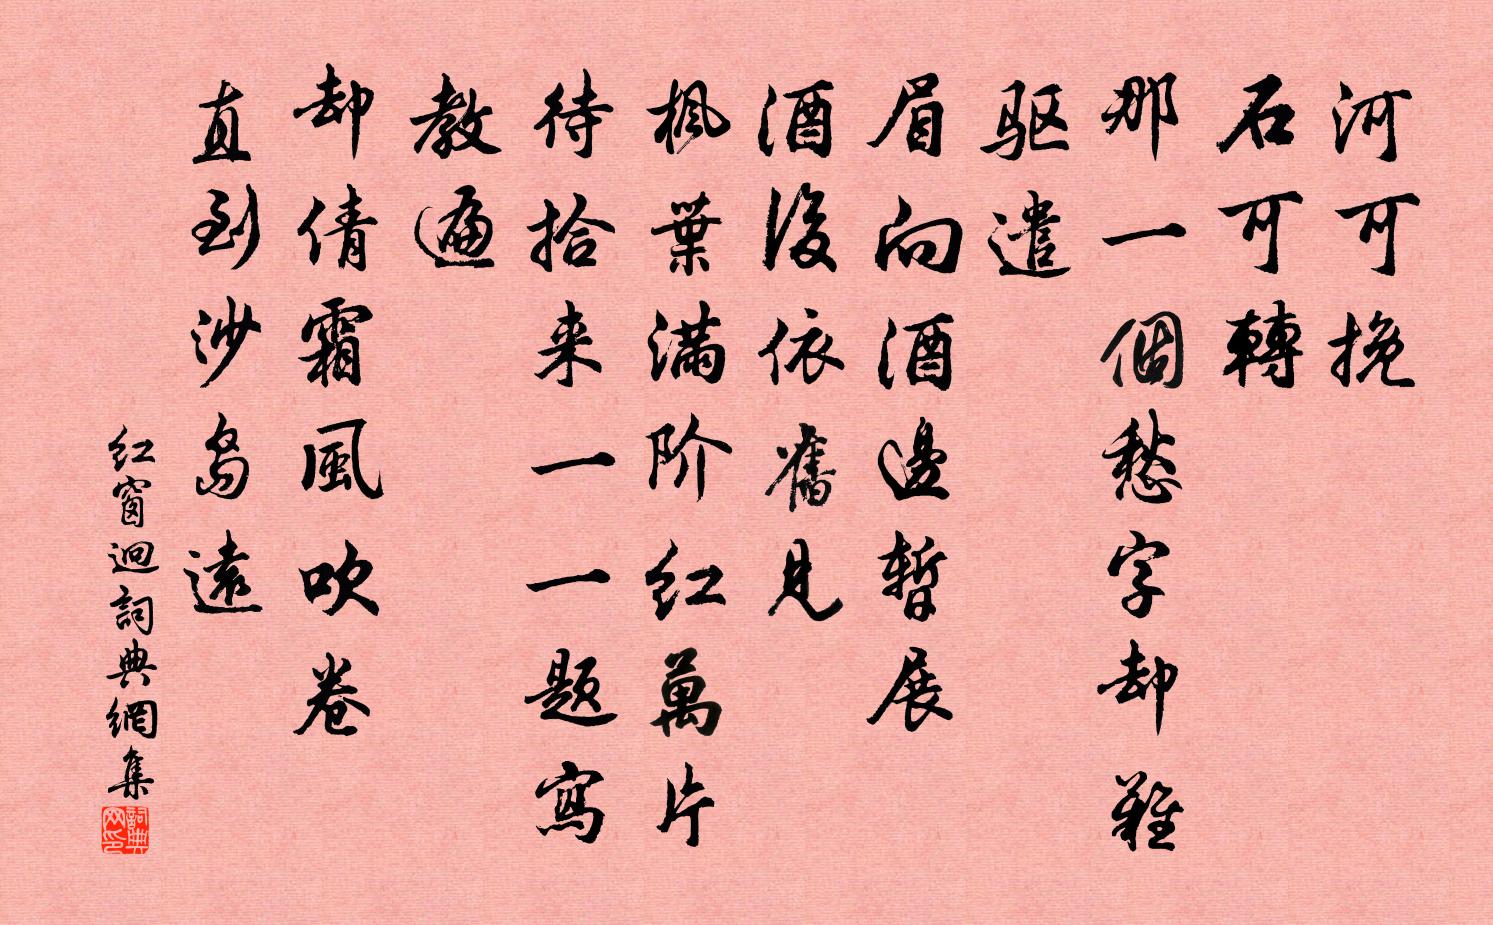 河可挽
石可轉
那一個愁字却難
驱遣
眉向酒邊暫展
酒後依舊見
枫葉满阶红萬片
待拾来一一题寫
教遍
却倩霜風吹卷
直到沙岛遠
红窗迥詞典網集
詞典网印